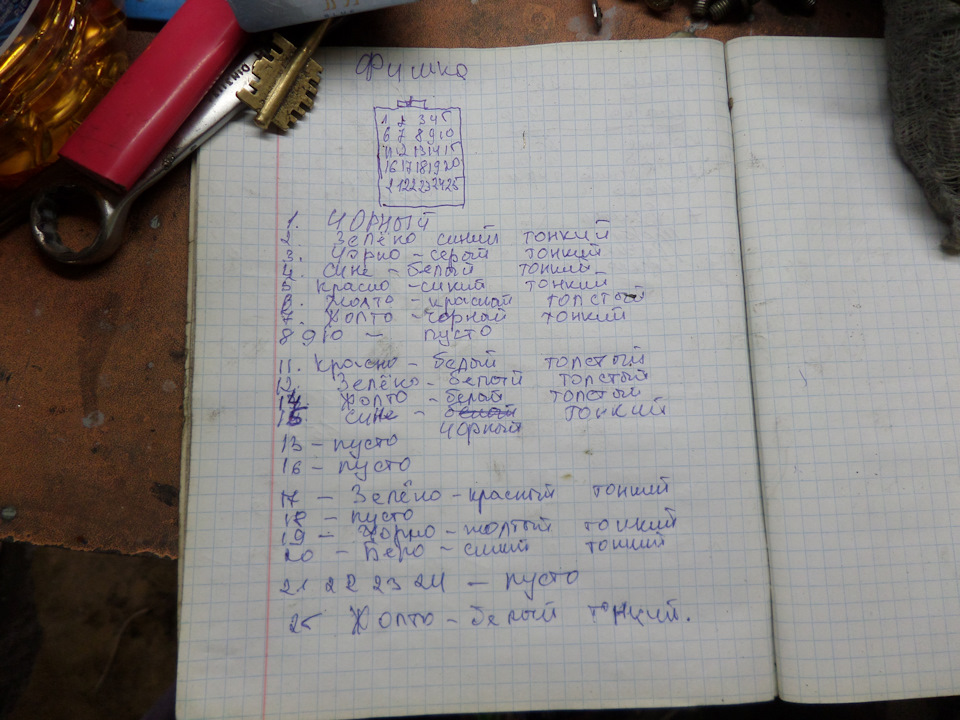 Фишка
1 2 3 4 5
6 7 8 9 10
11 12 13 14 15
16 17 18 19 20
21 22 23 24 25
1. ЧОРНЫЙ
2. Зелёно синий тонкий
3. Чорно - серый тонкий
4. Сине - белый тонкий
5 Красно - синий тонкий
6. Жолто - красный толстый
7. Жолто - чорный тонкий
8 9 10 - пусто
11. Красно - белый толстый
12. Зелёно - белый толстый
14. Жолто - белый толстый
15 Сине - белый тонкий
чорный
13 - пусто
16 - пусто
17 - Зелёно - красный тонкий
18 - пусто
19 - Чорно - жолтый тонкий
20 - Бело - синий тонкий
21 22 23 24 - пусто
25 Жолто - белый тонкий.